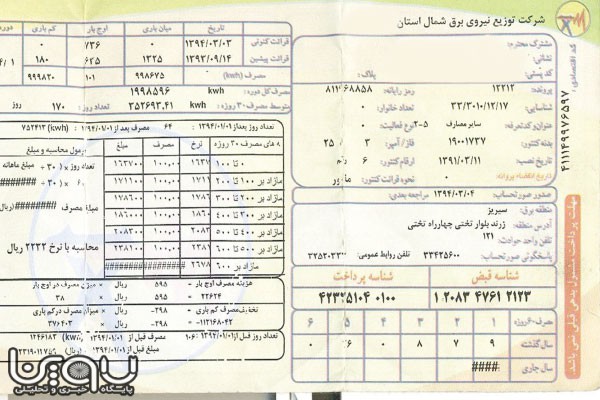 شرکت توزیع نیروی برق شمال استان
مشترک محترم:
نشانی:
کد پستی: پلاک:
پرونده: ۱۲۲۱۲ رمز رایانه:
شناسایی: ۳۳/۳۰۱۰/۱۲/۱۷ تعداد خانوار: ۰
عنوان کدتعرفه: سایر مصارف ۵-۲ نوع فعالیت: ۰
بدنه کنتور: ۱۹۰۰۱۷۳۷ فاز/آمپر: ۳ ۲۵
تاریخ نصب: ۱۳۹۱/۰۳/۱۱ ارقام کنتور: ۶ رقم
تاریخ انقضاء پروانه: نحوه قرائت کنتور:
صدور صورتحساب: ۱۳۹۴/۰۳/۰۴ مراجعه بعدی:
منطقه برق: سیریز
آدرس منطقه: زرند بلوار تختی چهارراه تختی
تلفن واحد حوادث: ۱۲۱
پاسخگوئی صورتحساب: ۳۳۴۲۵۶۰۰ تلفن روابط عمومی:
شناسه قبض شناسه پرداخت
1 2083 4761 2123
مصرف ۶ دوره ۱ ۲ ۳ ۴ ۵ ۶
سال گذشته ۹ ۸ ۷ ۰ ۶ ۰
سال جاری ####
کد اقتصادی: ۴۱۱۱۴۹۹۷۶۵۹۷
مهلت پرداخت مشمول بدهی قبلی نمی باشد
تاریخ میان باری اوج بار کم باری
قرائت کنونی ۱۳۹۴/۰۳/۰۳ ۰ ۷۳۶ ۰
قرائت پیشین ۱۳۹۳/۰۹/۱۴ ۱۳۲۵ ۶۳۵ ۱۸۰
مصرف (kwh) ۹۹۸۶۷۵ ۱۰۱ ۹۹۹۸۲۰
مصرف کل دوره: ۱۹۹۸۵۹۶ kwh
متوسط مصرف ۳۰ روزه: ۳۵۲۶۹۳.۴۱ kwh تعداد روز: ۱۷۰ روز
تعداد روز بعد از ۱۳۹۴/۰۱/۰۱: ۶۴ مصرف بعد از ۱۳۹۴/۰۱/۰۱: ۷۵۲۴۱۳ (kwh)
های مصرف ۳۰ روزه نرخ مصرف مبلغ
۰ تا ۱۰۰ ۱۶۳۷ ۱۰۰,۰۰ ۱۶۳۷۰۰
مازاد بر ۱۰۰ تا ۲۰۰ ۱۷۱۱ ۱۰۰,۰۰ ۱۷۱۱۰۰
مازاد بر ۲۰۰ تا ۳۰۰ ۱۷۸۶ ۱۰۰,۰۰ ۱۷۸۶۰۰
مازاد بر ۳۰۰ تا ۴۰۰ ۱۸۶۰ ۱۰۰,۰۰ ۱۸۶۰۰۰
مازاد بر ۴۰۰ تا ۵۰۰ ۲۰۸۳ ۱۰۰,۰۰ ۲۰۸۳۰۰
مازاد بر ۵۰۰ تا ۶۰۰ ۲۳۸۱ ۱۰۰,۰۰ ۲۳۸۱۰۰
مازاد بر ۶۰۰ ۲۶۷۸ ##############
محاسبه و مبلغ
محاسبه با نرخ ۲۲۳۲ ریال
هزینه مصرف اوج بار = ۵۹۵ ریال × میزان مصرف در اوج بار
۲۲۶۲۴ = ۵۹۵ × ۳۸
تخفیف مصرف کم باری = ۲۹۸- ریال × میزان مصرف در کم باری
۱۱۲۱۶۸۰۴۲- = ۲۹۸- × ۳۷۶۴۰۳
تعداد روز قبل از ۱۳۹۴/۰۱/۰۱: ۱۰۶ مصرف قبل از ۱۳۹۴/۰۱/۰۱: ۱۲۴۶۱۸۳
مبلغ قبل از ۱۳۹۴/۰۱/۰۱
پایگاه خبری و تحلیلی